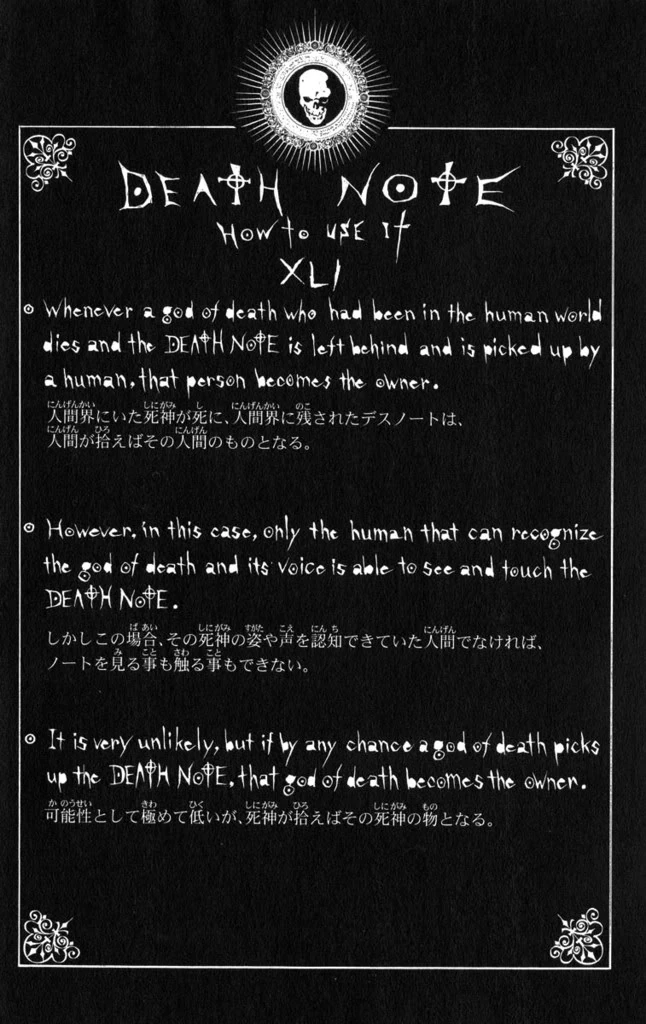 DEATH NOTE
HOW to USE It
XLI
Whenever a god of death who had been in the human world
dies and the DEATH NOTE is left behind and is picked up by
a human, that person becomes the owner.
人間界にいた死神が死に、人間界に残されたデスノートは、
人間が拾えばその人間のものとなる。
However, in this case, only the human that can recognize
the god of death and its voice is able to see and touch the
DEATH NOTE.
しかしこの場合、その死神の姿や声を認知できていた人間でなければ、
ノートを見る事も触る事もできない。
It is very unlikely, but if by any chance a god of death picks
up the DEATH NOTE, that god of death becomes the owner.
可能性として極めて低いが、死神が拾えばその死神の物となる。